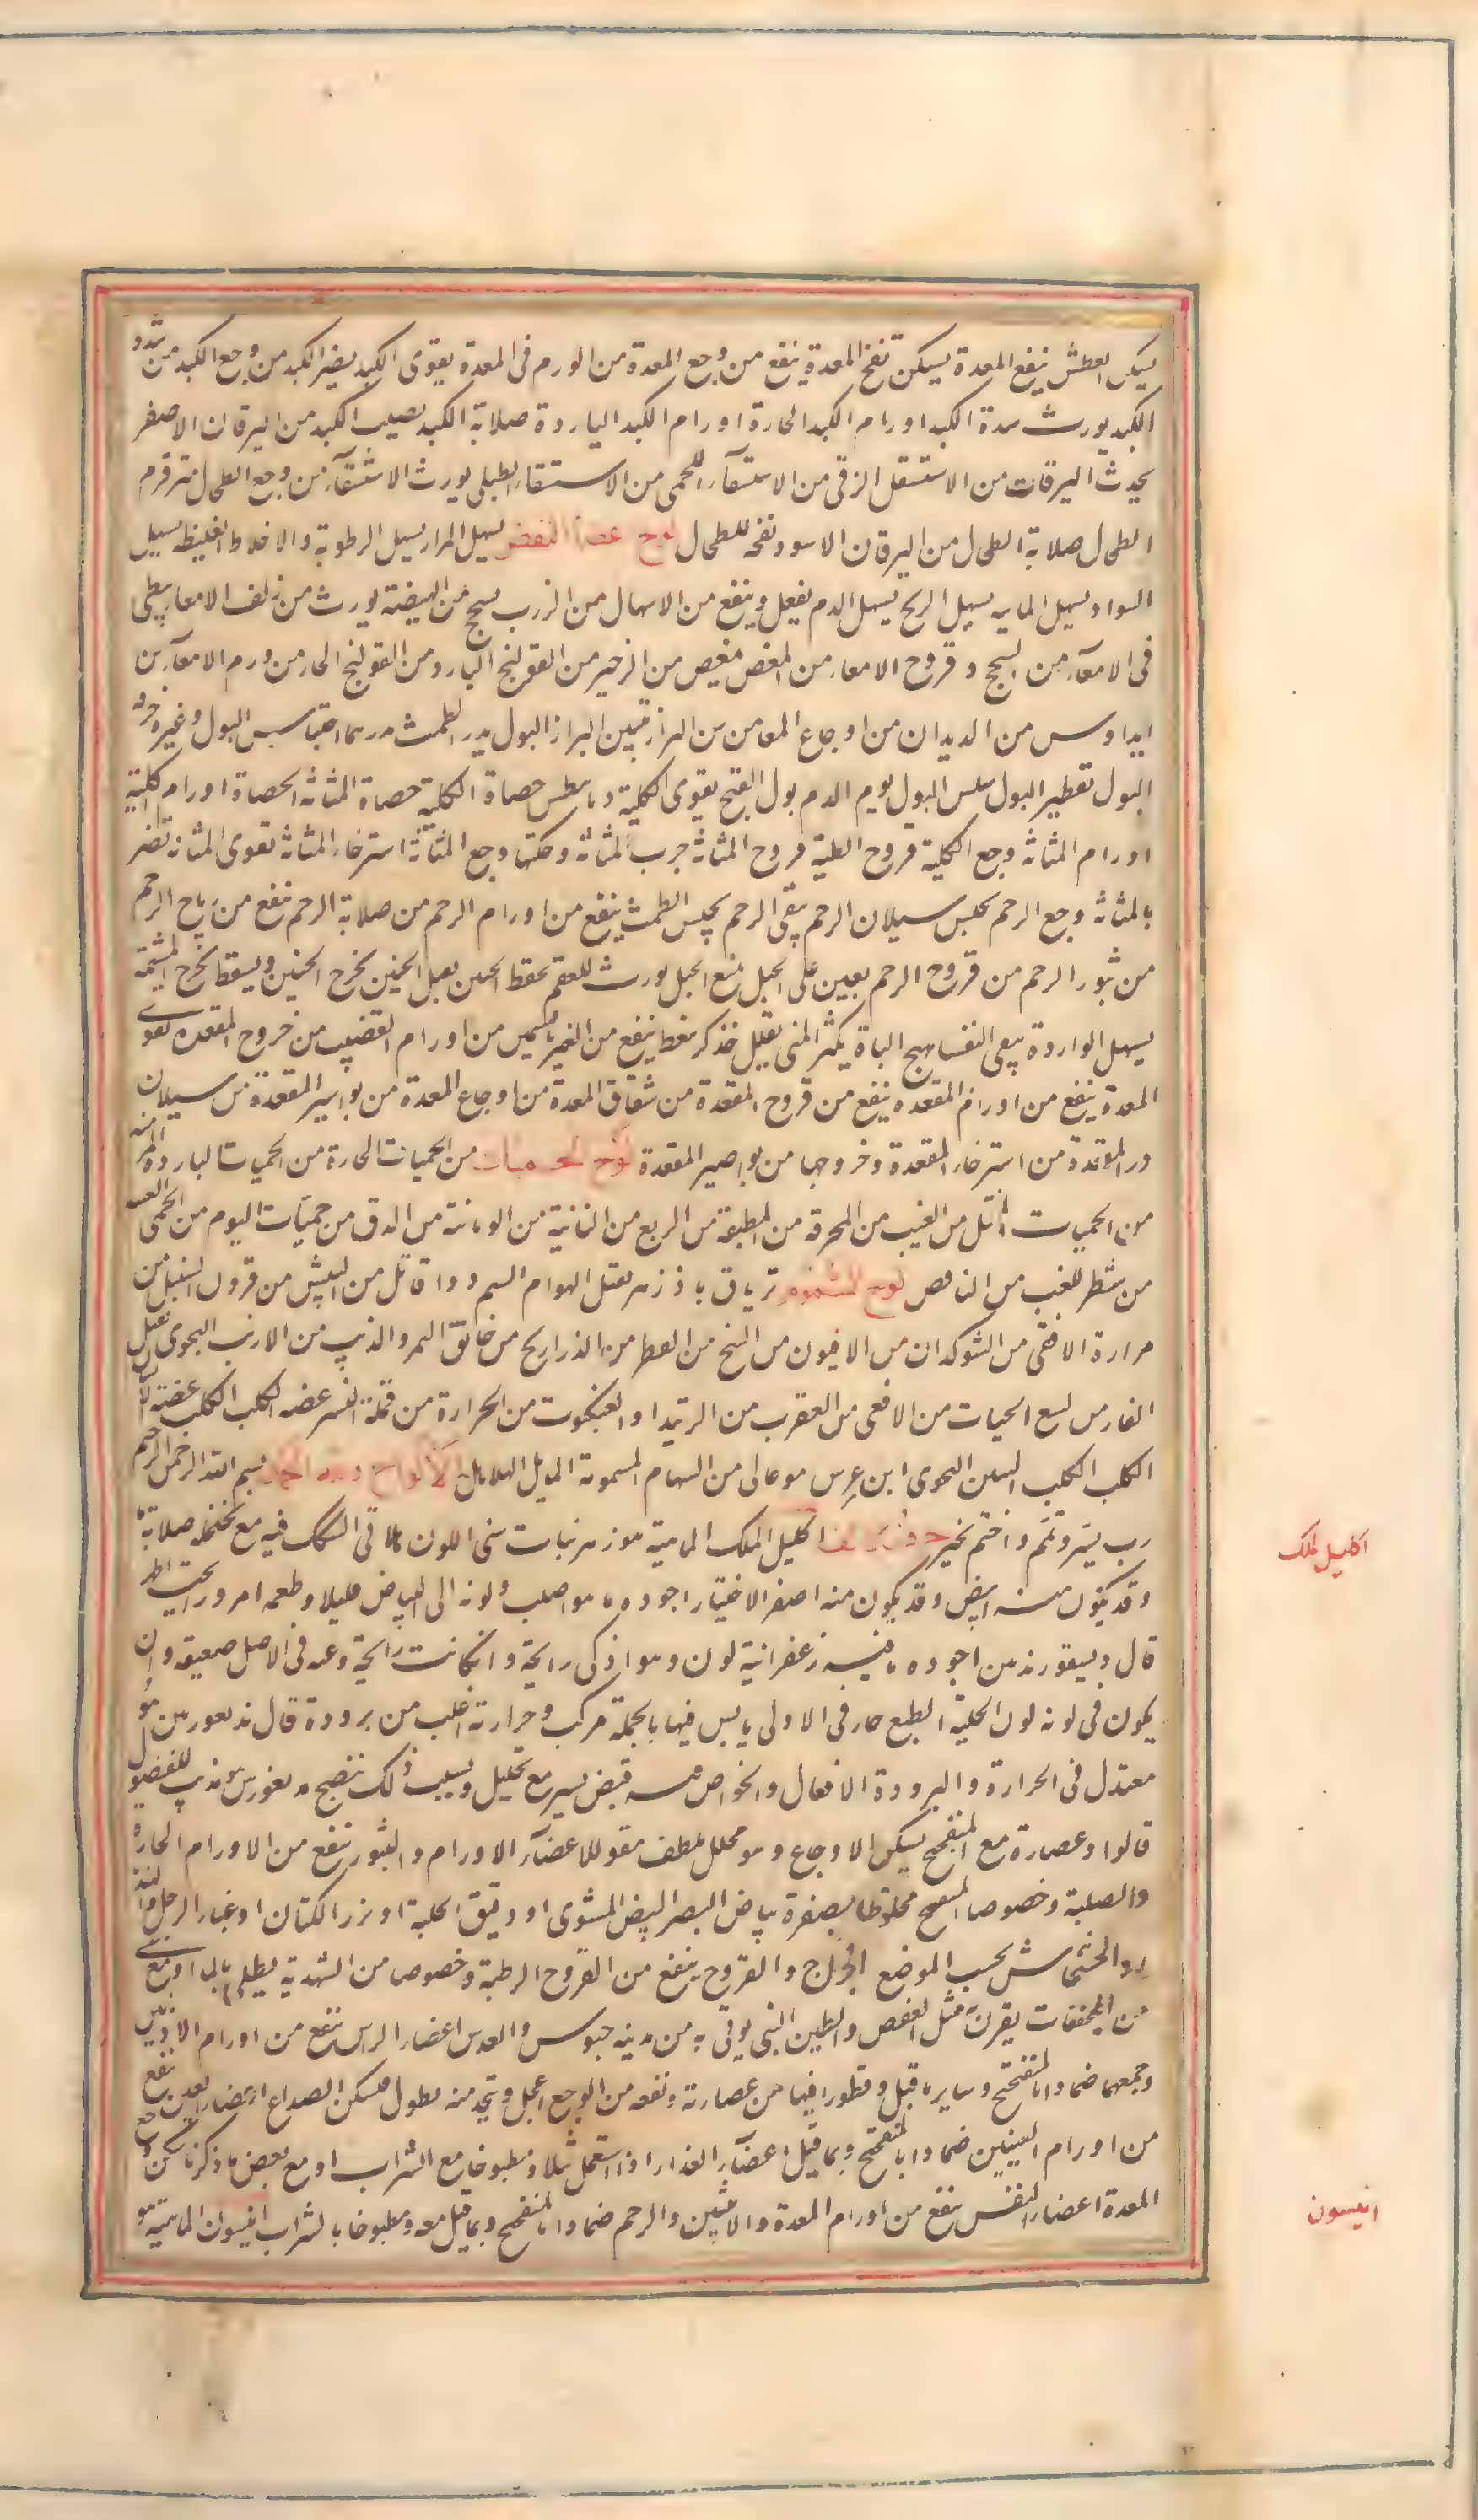 يسكن العطش ينفع المعدة يسكن نفخ المعدة ينفع من وجع المعدة من الورم فى المعدة يقوى الكبد يضر الكبد من وجع الكبد من سدد
الكبد يورث سدة الكبد اورام الكبد الحارة اورام الكبد الباردة صلابة الكبد يصلب الكبد من اليرقان الاصفر
يحدث اليرقان من الاستسقاء الزقى من الاستسقاء اللحمى من الاستسقاء الطبلى يورث الاستسقاء من وجع الطحال من ورم
الطحال صلابة الطحال من اليرقان الاسود نفخه للطحال لوح اعضاء النفض يسهل المرار يسهل الرطوبة والاخلاط الغليظه يسهل
السوداء يسهل المائيه يسهل الريح يسهل الدم يفعل وينفع من الاسهال من الزرب سحج من الهيضة يورث من زلق الامعاء يبطى
فى الامعاء من السحج وقروح الامعاء من المغص يمغص من الزحير من القولنج البارد من القولنج الحار من ورم الامعاء من
ايلاوس من الديدان من اوجاع المعا من البراز يلين البراز البول يدر الطمث يدر احتباس البول وغيره حرقه
البول تقطير البول سلس البول بول الدم بول القيح يقوى الكلية حصاة الكلية حصاة المثانة الحصاة اورام الكلية
اورام المثانة وجع الكلية قروح الكلية قروح المثانة جرب المثانة وحكتها وجع المثانة استرخاء المثانة تقوى المثانة تضر
بالمثانة وجع الرحم يحبس سيلان الرحم ينقى الرحم يحبس الطمث ينفع من اورام الرحم من صلابة الرحم ينفع من رياح الرحم
من بثور الرحم من قروح الرحم يعين على الحبل يمنع الحبل يورث العقم يحفظ الجنين يقتل الجنين يخرج الجنين ويسقط يخرج المشيمة
يسهل الولادة ينقى النفسا يهيج الباة يكثر المنى يقلل ينفع من اورام القضيب من خروج المقعدة يقوى
المعدة ينفع من اورام المقعدة ينفع من قروح المقعدة من شقاق المعدة من اوجاع المعدة من بواسير المقعدة من سيلان
من استرخاء المقعدة وخروجها من بواصير المقعدة لوح الحميات من الحميات الحارة من الحميات الباردة المزمنه
من الحميات من الغب من المحرقة من المطبقة من الربع من النائبة من الوبائية من الدق من حميات اليوم من الحمى
من شطر الغب من النافض لوح السموم ترياق باذزهر يقتل الهوام السم دوا قاتل من البيش من قرون السنبل من
مرارة الافعى من الشوكران من الافيون من البنج من الفطر من الذراريح من خانق النمر والذيب من الارنب البحرى يقتل
الفار من لسع الحيات من الافعى من العقرب من الرتيلا والعنكبوت من الجرارة من قملة النسر عضه الكلب الكلب عضة
الكلب الكلب التنين البحرى ابن عرس موغالى من السهام المسمومة الهلاهل الالواح بسم الله الرحمن الرحيم
رب يسر وتمم واختم بخير حرف الالف اكليل الملك الماهية هو زهر نبات تبنى اللون هلالى الشكل فيه مع تخلخله صلابة
وقد يكون منه ابيض وقد يكون منه اصفر الاختيار اجوده ما هو اصلب ولونه الى البياض قليلا وطعمه امر ورايحته اظهر
قال ديسقوريدس اجوده ما فيه زعفرانية لون وهو اذكى رايحة وان كانت رايحة نوعه فى الاصل ضعيفه وان
يكون فى لونه لون الحلبة الطبع حار فى الاولى يابس فيها بالجملة مركب وحرارته اغلب من برودة قال بديغورس هو
معتدل فى الحرارة والبرودة الافعال والخواص فيه قبض يسير مع تحليل وبسبب ذلك ينضج بديغورس مذيب للفضول
قالوا وعصارة مع الميفختج يسكن الاوجاع وهو محلل ملطف مقو للاعضاء الاورام والبثور ينفع من الاورام الحارة
والصلبة وخصوصا مع الميفختج مخلوطا بصفرة بياض البيض المشوى او دقيق الحلبة او بزر الكتان او غبار الرحى
والخشخاش بحسب الموضع الجراح والقروح ينفع من القروح الرطبة وخصوصا من الشهدية يطلى بالماء او مع
من المجففات يقرن مثل العفص والطين الذى يوتى به من مدينه جبوس والعدس اعضاء الراس ينفع من اورام الاذنين
وجمعهما ضمادا بالميفختج وساير ما قيل وقطورا فيها من عصارته ونفعه من الوجع اعجل ويتخذ منه نطول فيسكن الصداع اعضاء العين ينفع
من اورام العينين ضمادا بالميفختج وبما قيل اعضاء الغذاء اذا استعمل مبلا ومطبوخا مع الشراب او مع بعض ما ذكرنا سكن وجع
المعدة اعضاء النفض ينفع من اورام المعدة والانثيين والرحم ضمادا بالميفختج وبما قيل معه ومطبوخا بالشراب انيسون الماهية هو
اكليل الملك
انيسون